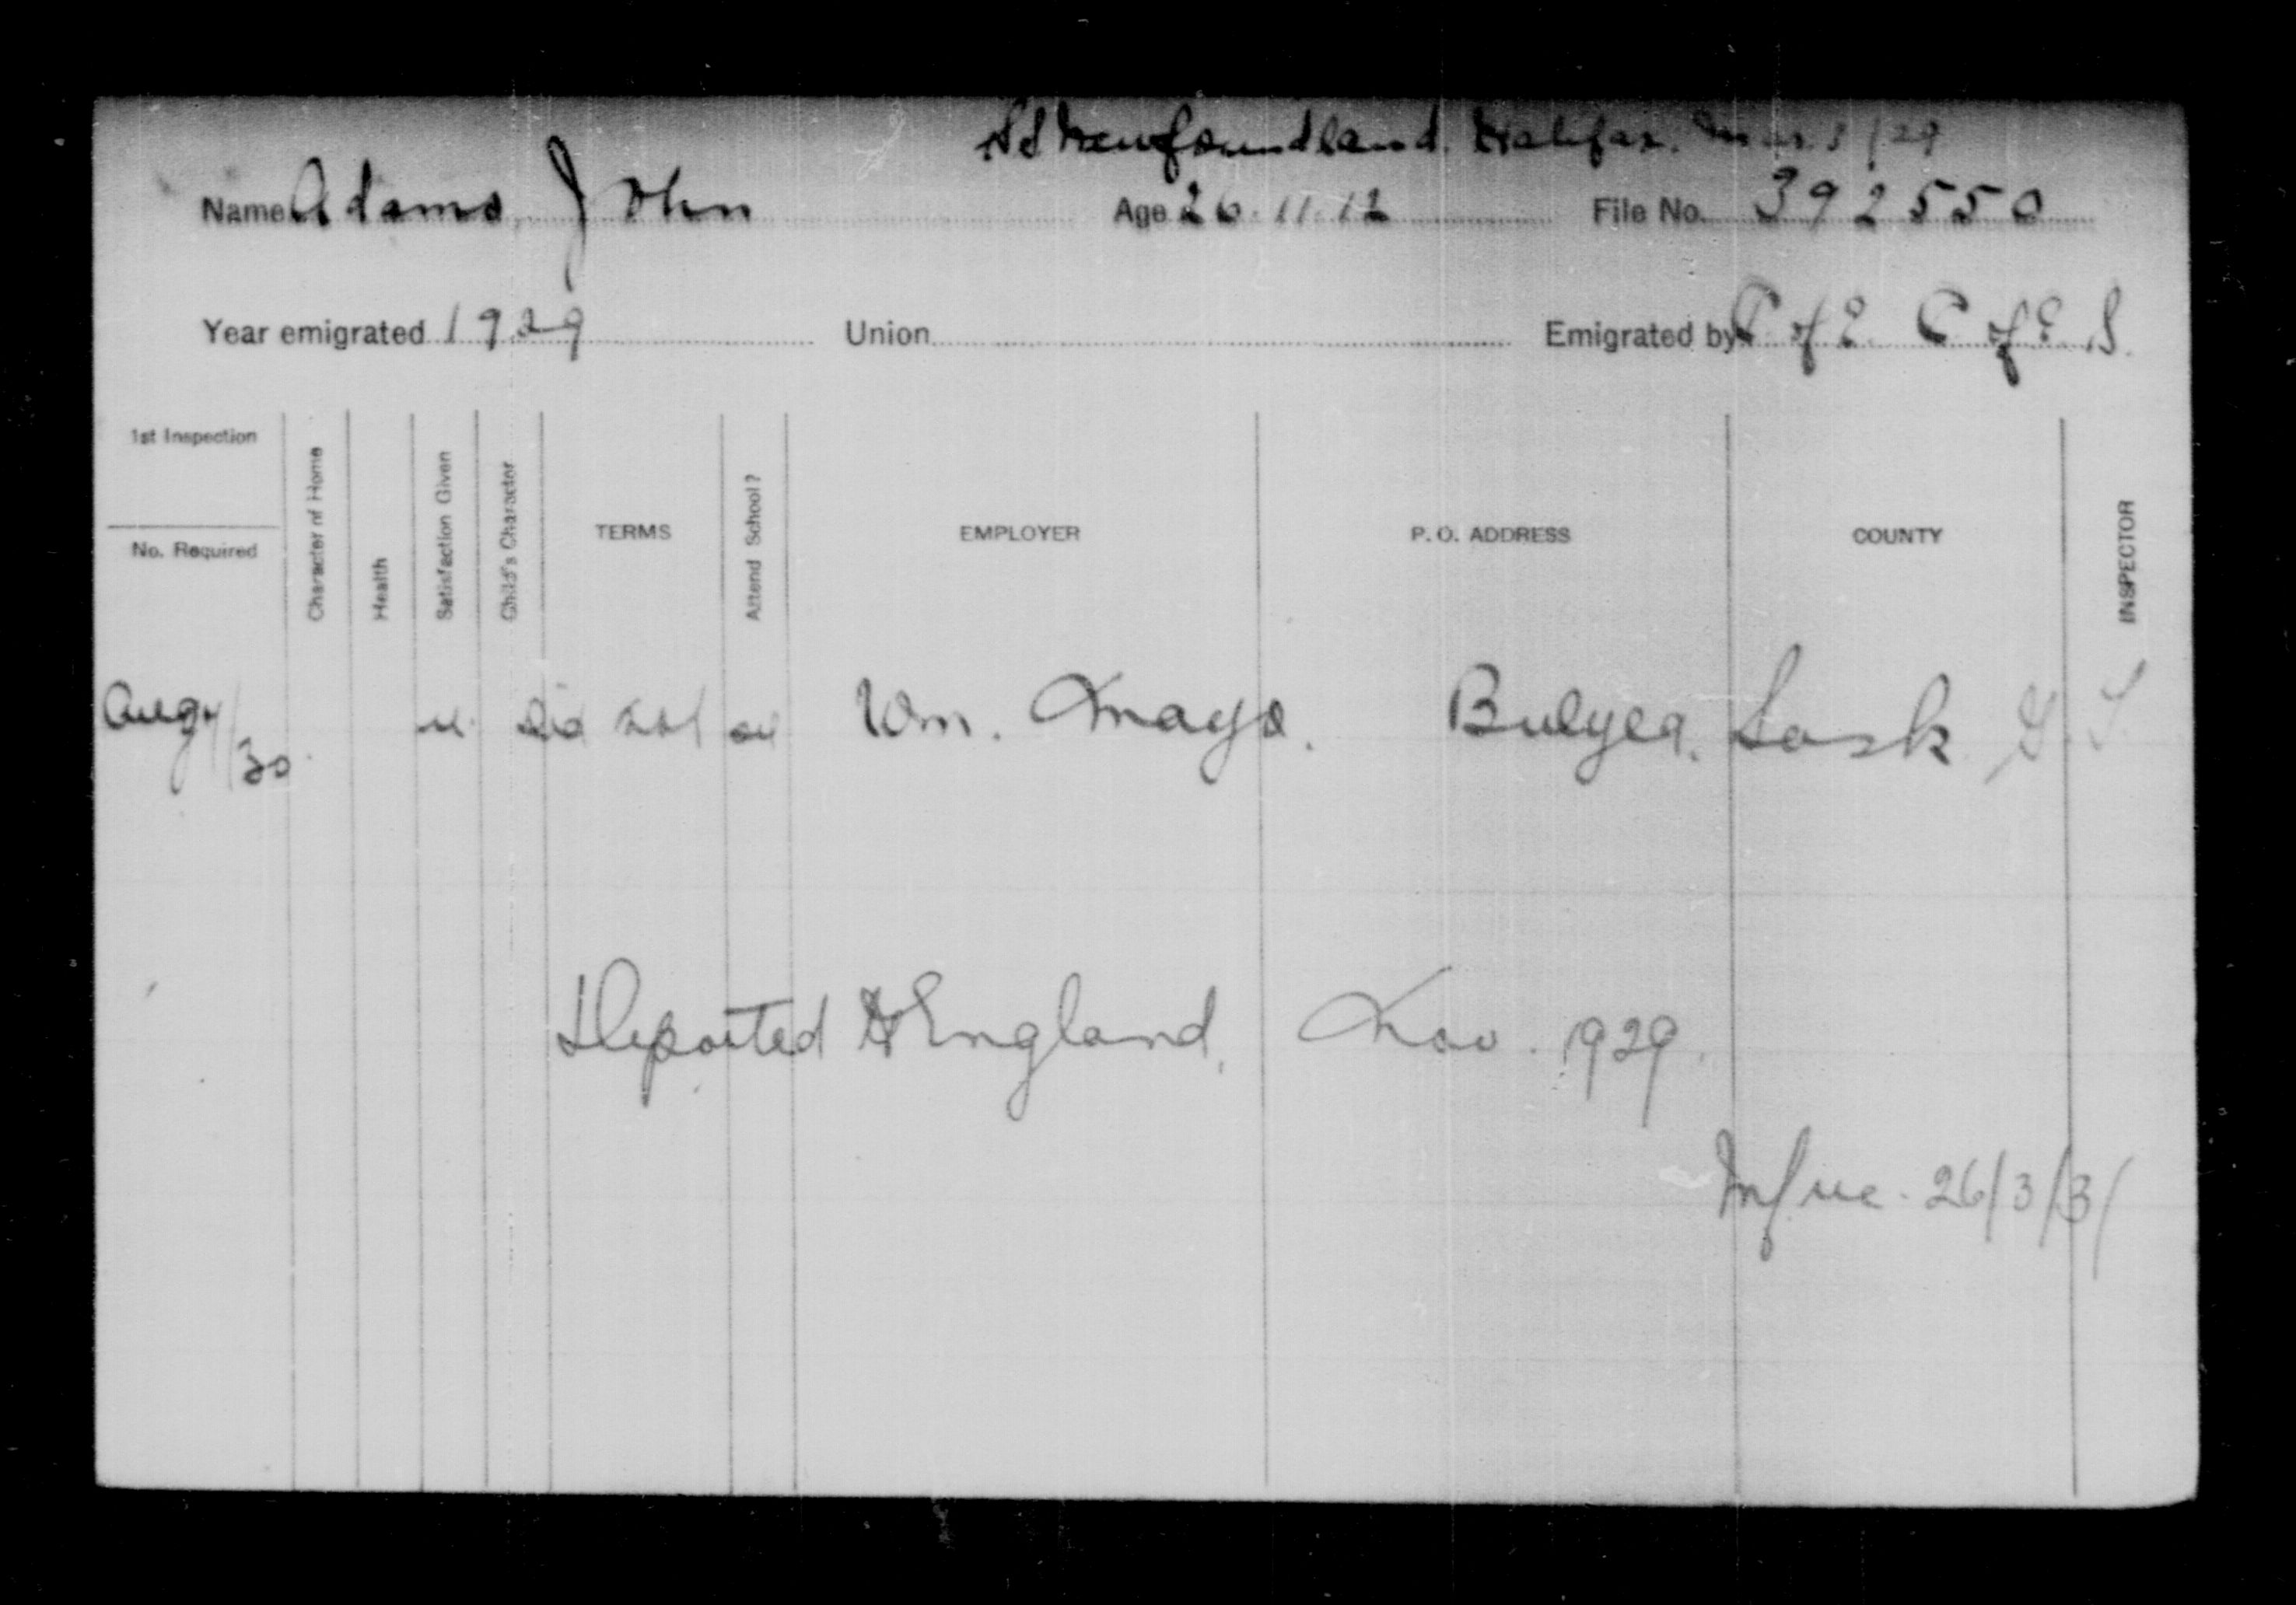 SS Newfoundland. Halifax. Mar. 8/29
Name Adams, John Age 26.11.12 File No. 392550
Year emigrated 1929 Union Emigrated by C of E. C of E. S.
1st Inspection
No. Required
Character of Home
Health
Satisfaction Given
Child's Character
TERMS
Attend School?
EMPLOYER
P. O. ADDRESS
COUNTY
INSPECTOR
Aug/30 Wm. Bulyea. Sask
Deported to England. Nov. 1929.
26/3/31